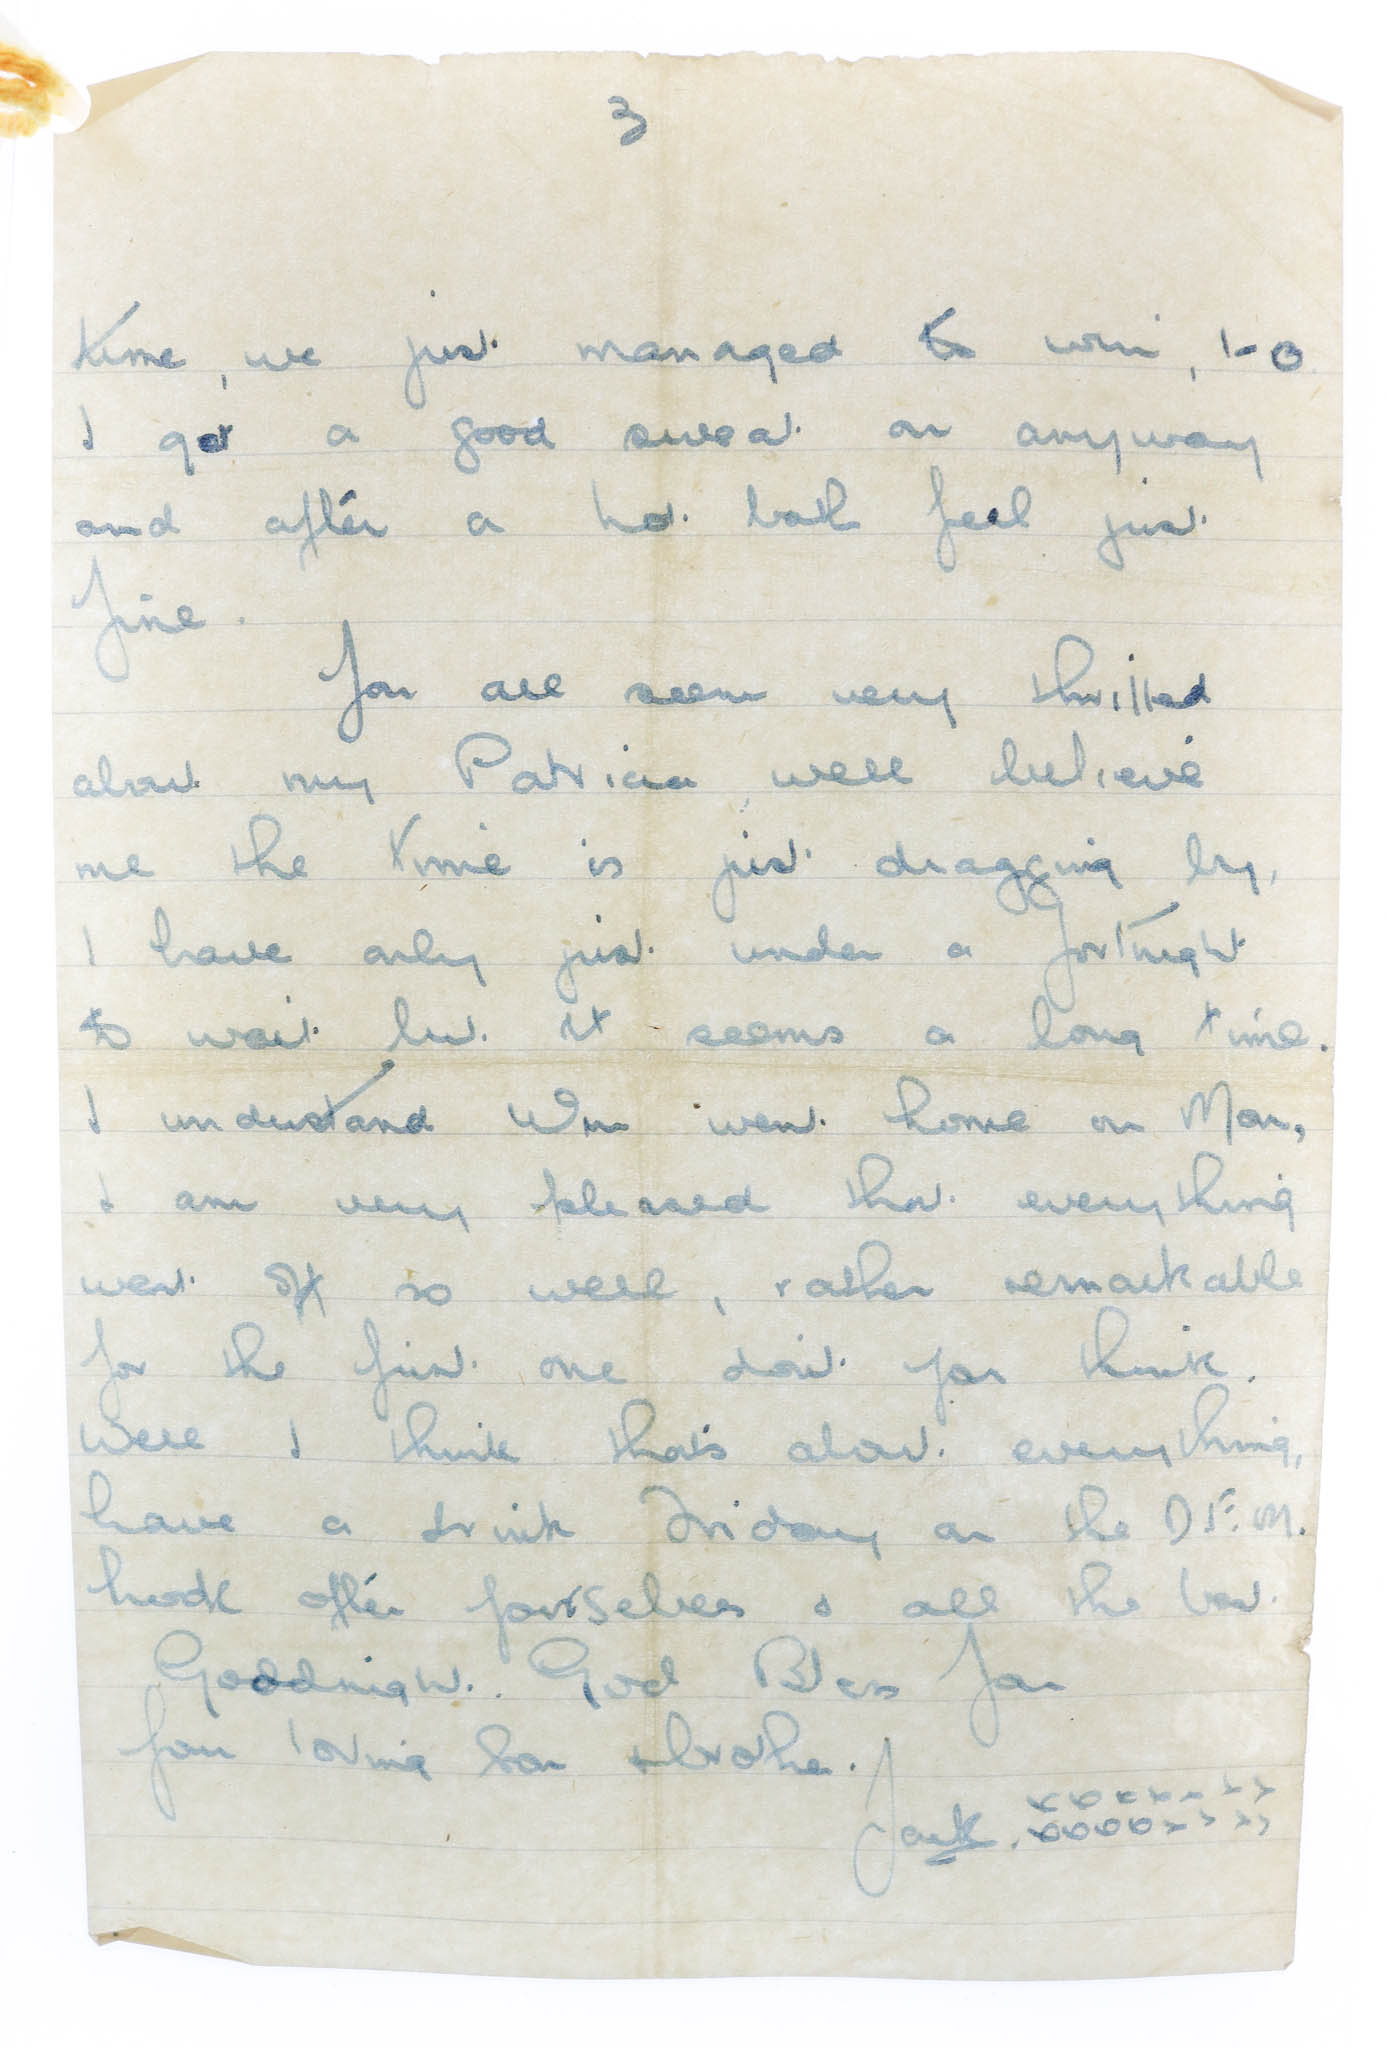 3
time, we just managed to win, 1-0
I got a good sweat on anyway
and after a hot bath feel just
fine.
You all seem very thrilled
about my Patricia, well believe
me the time is just dragging by,
I have only just under a fortnight
to wait but it seems a long time.
I understand Wm went home on Mon,
I am very pleased that everything
went off so well, rather remarkable
for the first one don't you think.
Well I think thats about everything,
have a drink Friday on the D.F.M.
Look after yourselves & all the best.
Goodnight. God Bless You
Your loving Son & brother.
Jack. xxxxxxxx
xxxxxxxx